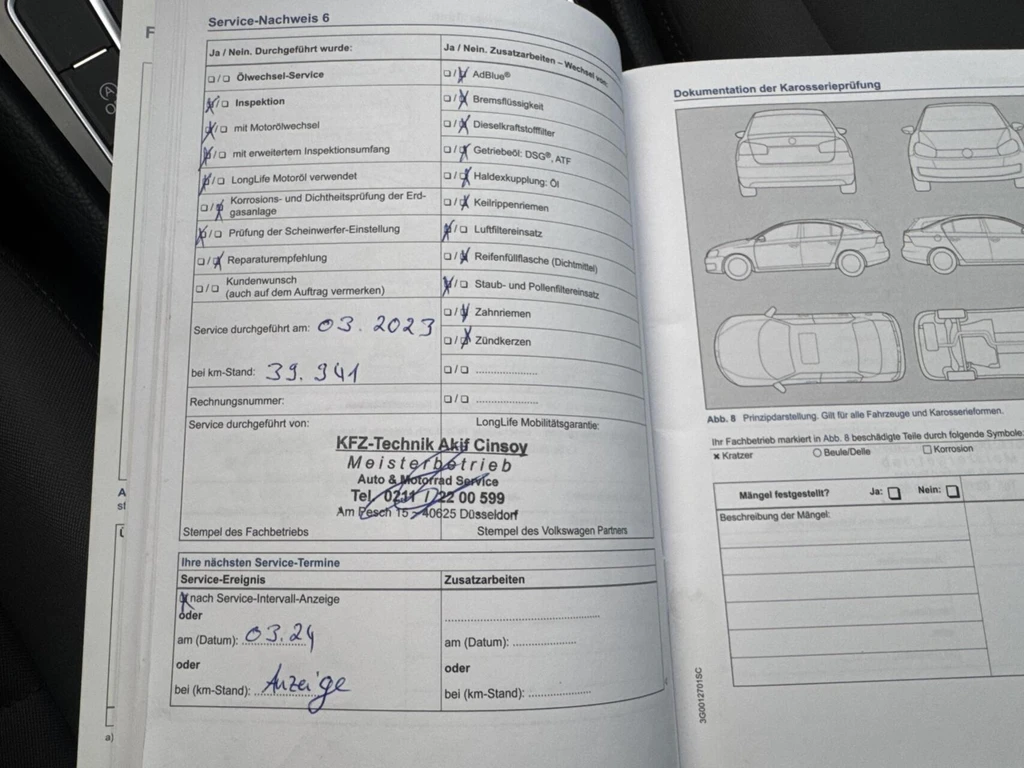 Service-Nachweis 6
Ja / Nein. Durchgeführt wurde:
❑/❑ Ölwechsel-Service
❑/❑ Inspektion
❑/❑ mit Motorölwechsel
❑/❑ mit erweitertem Inspektionsumfang
❑/❑ LongLife Motoröl verwendet
❑/❑ Korrosions- und Dichtheitsprüfung der Erd-
gasanlage
❑/❑ Prüfung der Scheinwerfer-Einstellung
❑/❑ Reparaturempfehlung
❑/❑ Kundenwunsch
(auch auf dem Auftrag vermerken)
Service durchgeführt am: 03. 2023
bei km-Stand: 39.941
Rechnungsnummer:
Ja / Nein. Zusatzarbeiten – Wechsel von:
❑/❑ AdBlue®
❑/❑ Bremsflüssigkeit
❑/❑ Dieselkraftstofffilter
❑/❑ Getriebeöl: DSG®, ATF
❑/❑ Haldexkupplung: Öl
❑/❑ Keilrippenriemen
❑/❑ Luftfiltereinsatz
❑/❑ Reifenfüllflasche (Dichtmittel)
❑/❑ Staub- und Pollenfiltereinsatz
❑/❑ Zahnriemen
❑/❑ Zündkerzen
❑/❑ ....................
❑/❑ ....................
Service durchgeführt von:
LongLife Mobilitätsgarantie:
KFZ-Technik Akif Cinsoy
Meisterbetrieb
Auto & Motorrad Service
Tel. 0211 / 22 00 599
Am Pesch 15 - 40625 Düsseldorf
Stempel des Fachbetriebs
Stempel des Volkswagen Partners
Ihre nächsten Service-Termine
Service-Ereignis
nach Service-Intervall-Anzeige
oder
am (Datum): 03.24
oder
bei (km-Stand): Anzeige
Zusatzarbeiten
..............................
am (Datum): ....................
oder
bei (km-Stand): ....................
Dokumentation der Karosserieprüfung
Abb. 8 Prinzipdarstellung. Gilt für alle Fahrzeuge und Karosserieformen.
Ihr Fachbetrieb markiert in Abb. 8 beschädigte Teile durch folgende Symbole:
× Kratzer
○ Beule/Delle
❑ Korrosion
Mängel festgestellt?
Ja: ❑
Nein: ❑
Beschreibung der Mängel:
3G0012701SC
F
A
st
a)